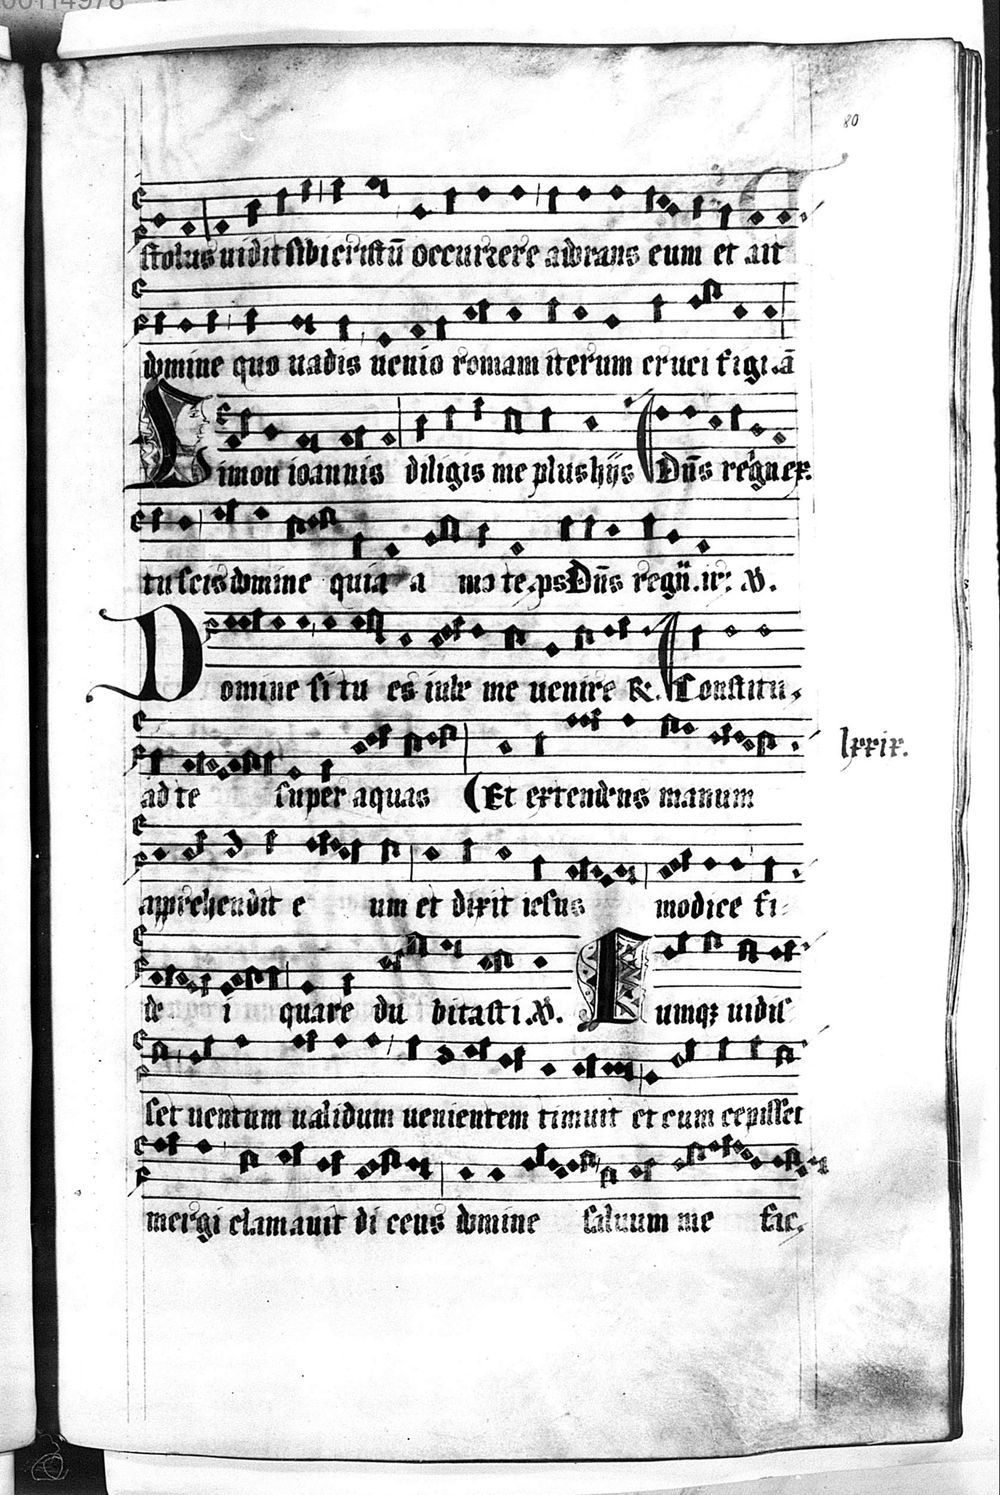 00114978
80
stolus uidit sibi cristū occurrere adorans eum et ait
domine quo uadis uenio romam iterum cruci figi .ā
Simon ioannis diligis me plus hijs Dn̄s regnet.
tu scis domine quia a mo te. ps Dn̄s regn̄. ir: ℣.
Domine si tu es iube me uenire ℟. Constitu,
lxxix.
ad te super aquas Et extendens manum
apprehendit e um et dixit iesus modice fi-
de i quare du bitasti. ℣. Cumqꝫ uidis
set uentum ualidum uenientem timuit et cum cepisset
mergi clamauit di cens domine saluum me fac.